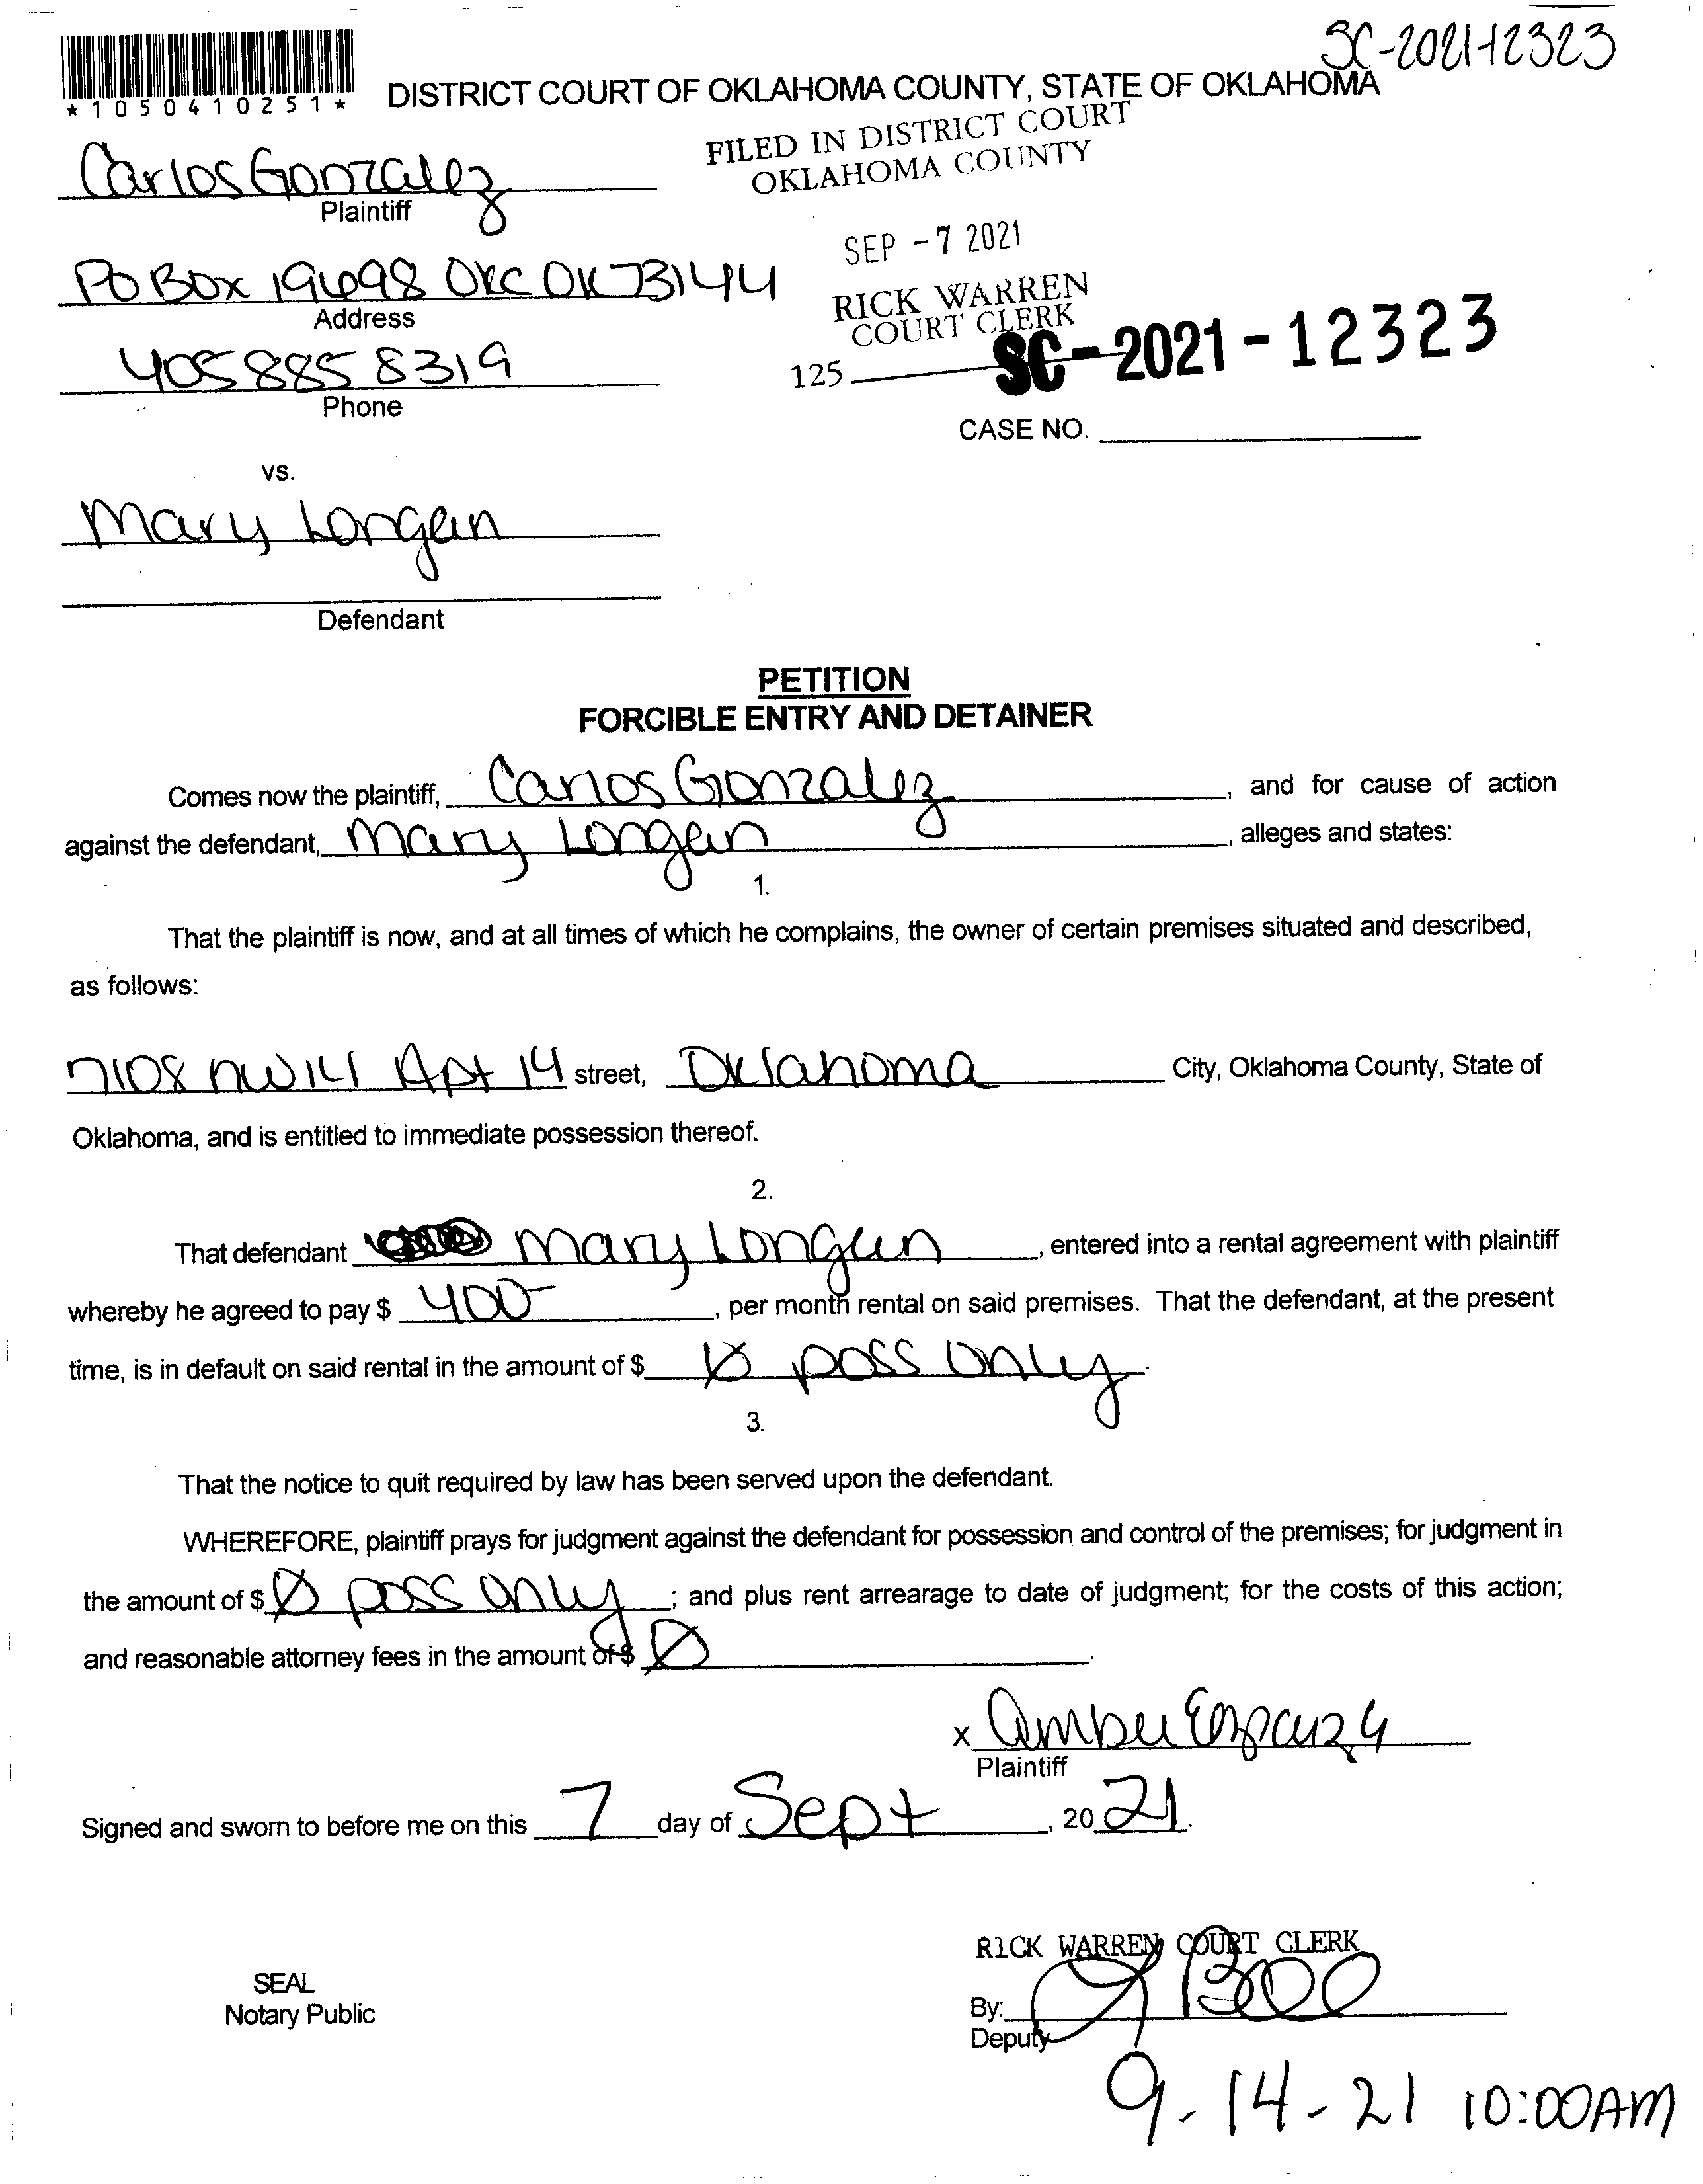 SC-2021-12323
*1050410251*
DISTRICT COURT OF OKLAHOMA COUNTY, STATE OF OKLAHOMA
FILED IN DISTRICT COURT
OKLAHOMA COUNTY
Carlos Gonzalez
Plaintiff
SEP -7 2021
PO BOX 19698 OKC OK 73144
Address
RICK WARREN
COURT CLERK
405 885 8319
Phone
125
SC-2021-12323
CASE NO.
vs.
Mary Longan
Defendant
PETITION
FORCIBLE ENTRY AND DETAINER
Comes now the plaintiff, Carlos Gonzalez, and for cause of action
against the defendant, Mary Longan, alleges and states:
1.
That the plaintiff is now, and at all times of which he complains, the owner of certain premises situated and described,
as follows:
7108 NW 141 Apt 14 street, Oklahoma City, Oklahoma County, State of
Oklahoma, and is entitled to immediate possession thereof.
2.
That defendant Mary Longan, entered into a rental agreement with plaintiff
whereby he agreed to pay $ 400-, per month rental on said premises. That the defendant, at the present
time, is in default on said rental in the amount of $ Ø poss only.
3.
That the notice to quit required by law has been served upon the defendant.
WHEREFORE, plaintiff prays for judgment against the defendant for possession and control of the premises; for judgment in
the amount of $ Ø poss only; and plus rent arrearage to date of judgment; for the costs of this action;
and reasonable attorney fees in the amount of $ Ø.
x Amber Esparza
Plaintiff
Signed and sworn to before me on this 7 day of Sept, 20 21.
RICK WARREN COURT CLERK
SEAL
Notary Public
By:
Deputy
9-14-21 10:00AM